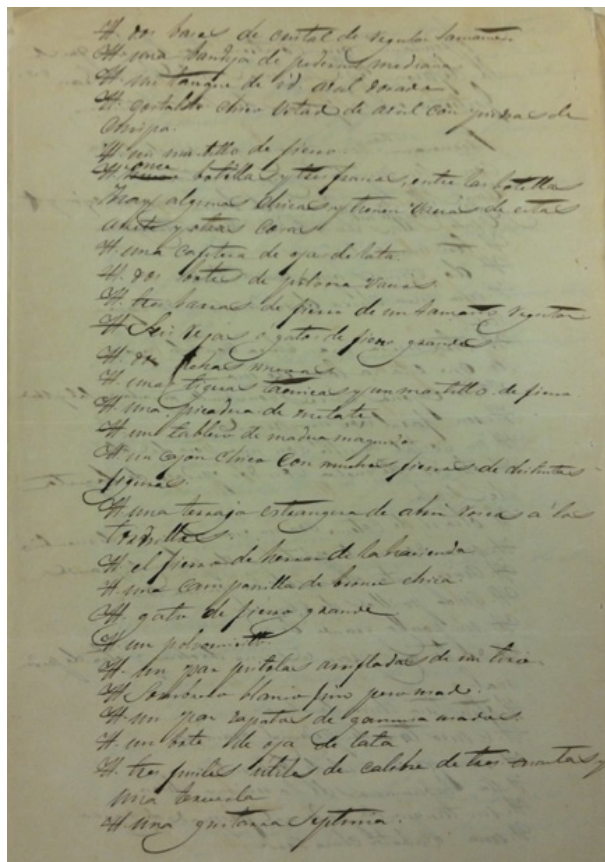 H. dos bases de cristal de regular tamaño
H. una bandeja de pedernal mediana
H. un tanque de id. azul dorado
H. chico de azul con piedras de
chispa.
H. un martillo de fierro
H. once botellas y tres frascos, entre las botellas
hay algunas chicas y tienen de esta
aceite y otras cosas
H. una cafetera de oja de lata.
H. dos botes de polvora vacios
H. tres barras de fierro de un tamaño regular
H. Seis rejas o gatos de fierro grandes.
H. dos nuevas
H. unas tigeras y un martillo de fierro
H. una picadera de metate
H. un tablero de madera
H. un cajon chico con muchos fierros de distintas
figuras.
H. una terraja estrangera de abrir rosca a los
tornillos
H. el fierro de herrar de la hacienda
H. una campanilla de bronce chica
H. gato de fierro grande
H. un
H. un par pistolas de un tiro
H. Sombrero blanco fino
H. un par zapatos de gamuza usados
H. un bote de oja de lata
H. tres fusiles utiles de calibre de tres y
una
H. una guitarra septima.